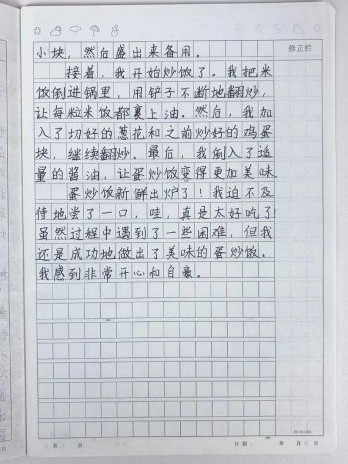 修正栏
小块，然后盛出来备用。
接着，我开始炒饭了。我把米
饭倒进锅里，用铲子不断地翻炒，
让每粒米饭都裹上油。然后，我加
入了切好的葱花和之前炒好的鸡蛋
块，继续翻炒。最后，我倒入了适
量的酱油，让蛋炒饭变得更加美味
蛋炒饭新鲜出炉了！我迫不及
待地尝了一口，哇，真是太好吃了！
虽然过程中遇到了一些困难，但我
还是成功地做出了美味的蛋炒饭。
我感到非常开心和自豪。